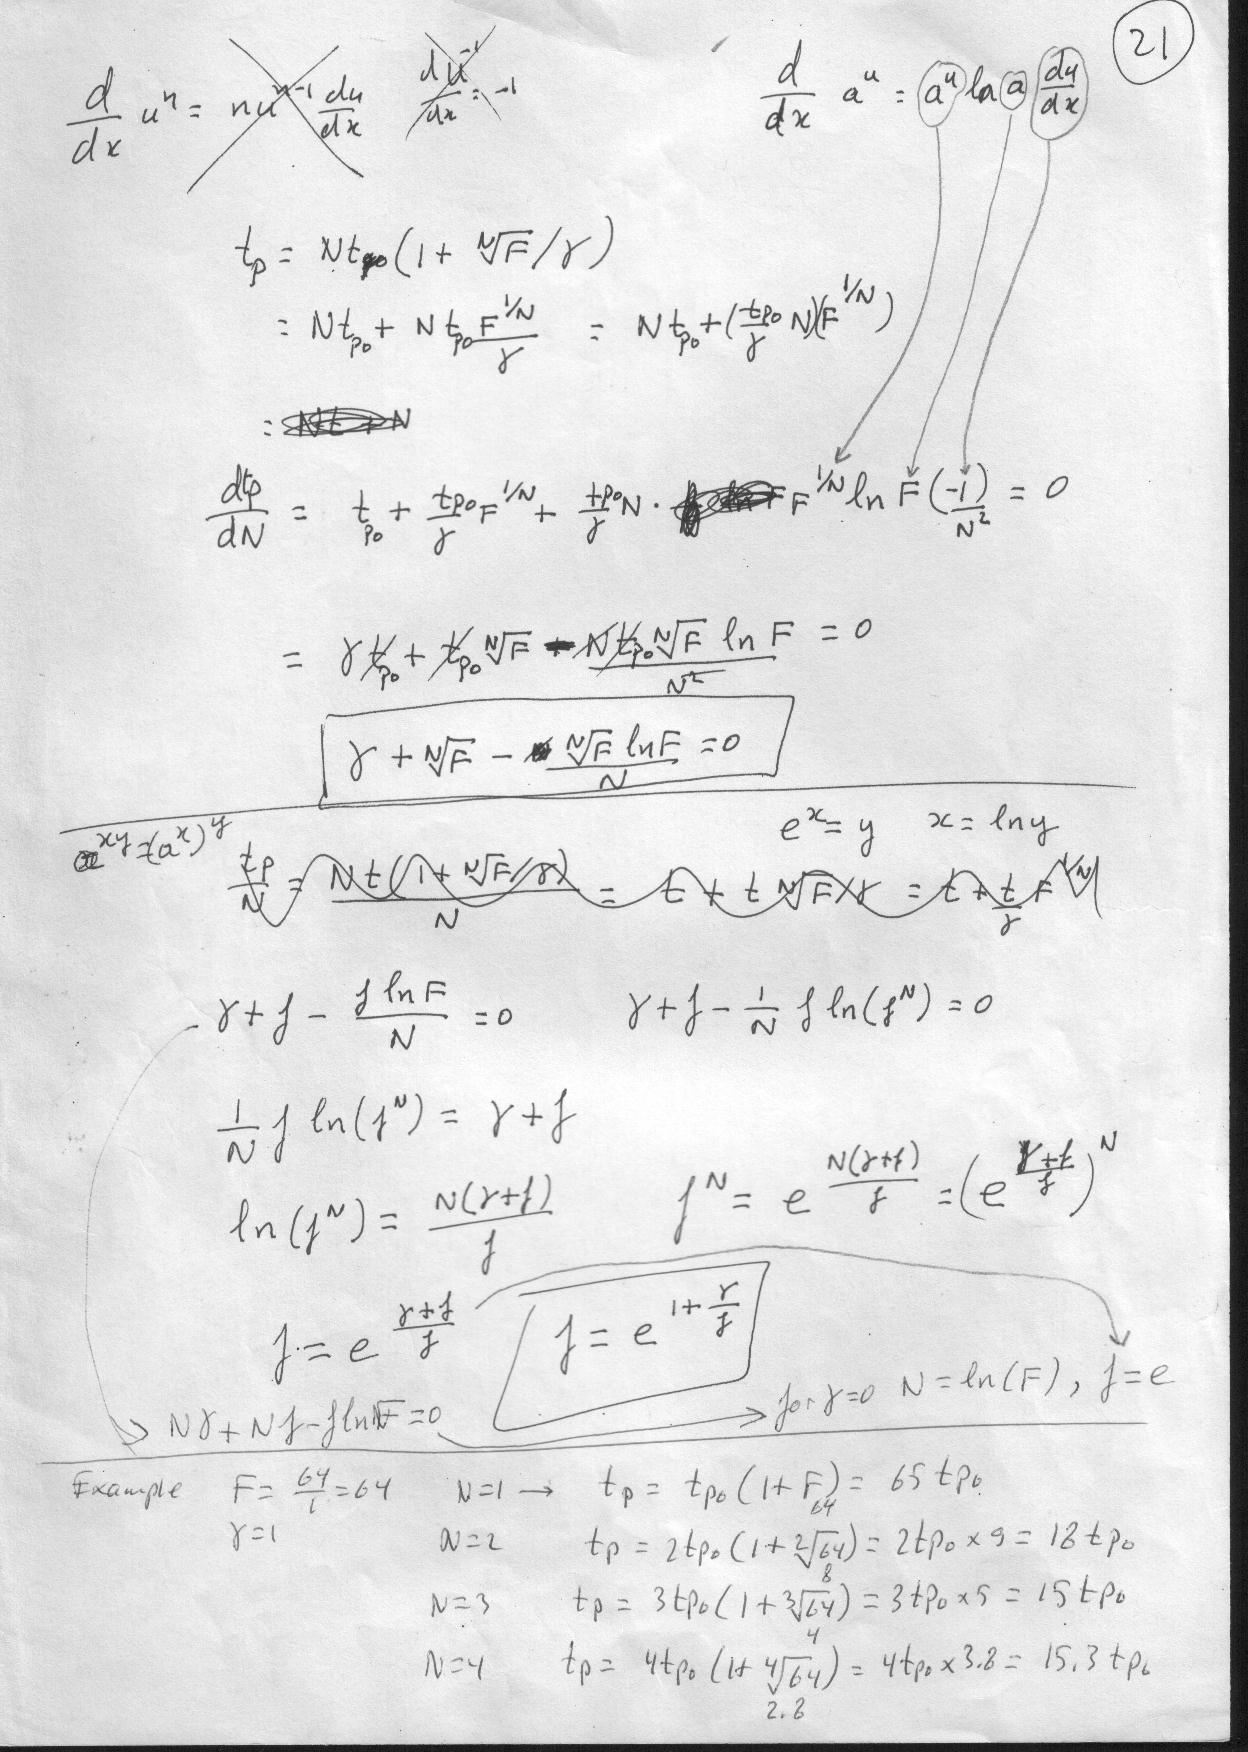 21
d/dx uⁿ = nuⁿ⁻¹ du/dx    du⁻¹/dx = -1    d/dx aᵘ = aᵘ ln a du/dx
t_p = N t_p0 (1 + ᴺ√F/γ)
= N t_p0 + N t_p0 F^(1/N)/γ = N t_p0 + (t_p0/γ N)(F^(1/N))
= Nt + N
dt_p/dN = t_p0 + t_p0/γ F^(1/N) + t_p0/γ N · F^(1/N) ln F (-1/N²) = 0
= γ t_p0 + t_p0 ᴺ√F - N t_p0 ᴺ√F ln F / N² = 0
γ + ᴺ√F - ᴺ√F ln F / N = 0
a^xy = (a^x)^y    e^x = y    x = ln y
t_p/N = N t (1 + ᴺ√F/γ) / N = t + t ᴺ√F/γ = t + t/γ F^(1/N)
γ + f - f ln F / N = 0    γ + f - 1/N f ln(f^N) = 0
1/N f ln(f^N) = γ + f
ln(f^N) = N(γ+f)/f    f^N = e^(N(γ+f)/f) = (e^((γ+f)/f))^N
f = e^((γ+f)/f)    f = e^(1+γ/f)
Nγ + Nf - f ln F = 0    for γ=0 N = ln(F), f = e
Example F = 64/1 = 64    N=1 → t_p = t_p0 (1 + F) = 65 t_p0
64
γ=1    N=2    t_p = 2t_p0 (1 + ²√64) = 2t_p0 × 9 = 18 t_p0
8
N=3    t_p = 3t_p0 (1 + ³√64) = 3t_p0 × 5 = 15 t_p0
4
N=4    t_p = 4t_p0 (1 + ⁴√64) = 4t_p0 × 3.8 = 15.3 t_p0
2.8